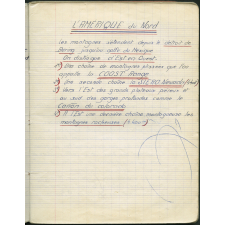 L'AMERIQUE du Nord
Les montagnes s'étendent depuis le détroit de
Bering jusqu'au golfe du Mexique
On distingue d'Est en Ouest.
1) Une chaîne de montagnes plissées que l'on
appelle la COAST Range
2) Une seconde chaîne la SIERRA Nevada
3) Vers l'Est des grands plateaux percés et
au sud des gorges profondes comme le
Cañon de colorado
4) A l'Est une dernière chaîne montagneuse les
montagnes rocheuses